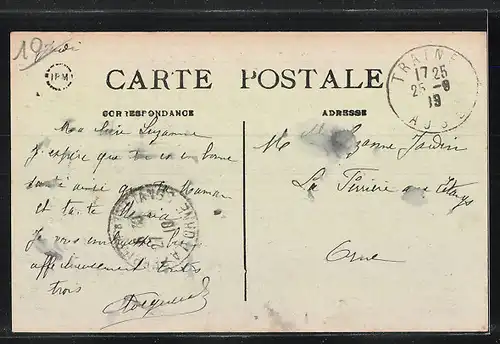 19
Jeudi
IPM
CARTE POSTALE
CORRESPONDANCE
ADRESSE
TRAINE
17 25
25 - 9
19
Ma chère Suzanne
J'espère que tu es en bonne
santé ainsi que ta Maman
et tante Maria
Je vous embrasse bien
affectueusement toutes
trois
Suzanne Jardin
La Ferrière aux Etangs
Orne